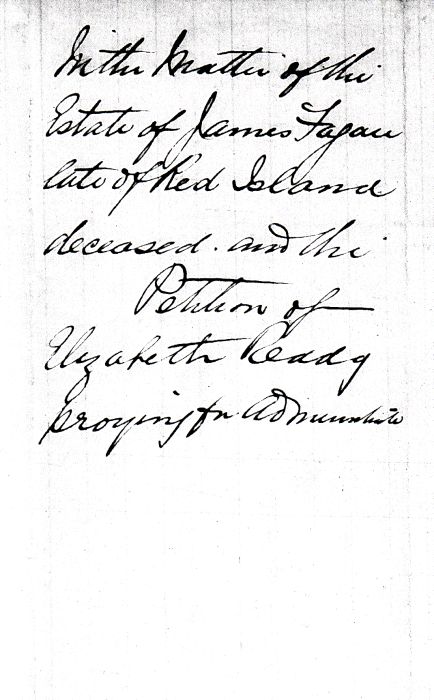 In the Matter of the
Estate of James Fagan
late of Red Island
deceased. and the
Petition of
Elizabeth Reddy
praying for